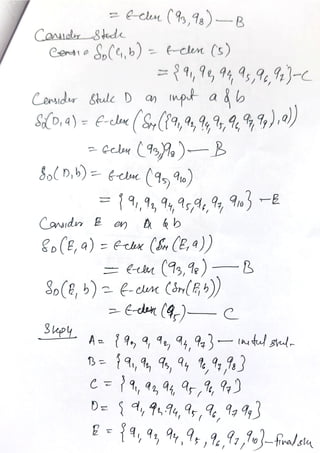 = ε-closer (q3, q8) — B
Consider State
δD(C, b) = ε-closer (5)
= {q1, q2, q4, q5, q6, q7} — C
Consider State D on input a & b
δD(D, a) = ε-closer (δN({q1, q2, q4, q5, q6, q7, q9}, a))
= ε-closer (q3, q8) — B
δD(D, b) = ε-closer (q5, q10)
= {q1, q2, q4, q5, q6, q7, q10} — E
Consider E on a & b
δD(E, a) = ε-closer (δN(E, a))
= ε-closer (q3, q8) — B
δD(E, b) = ε-closer (δN(E, b))
= ε-closer (q5) — C
Step 4
A = {q0, q1, q2, q4, q7} — initial state
B = {q1, q2, q3, q4, q6, q7, q8}
C = {q1, q2, q4, q5, q6, q7}
D = {q1, q2, q4, q5, q6, q7, q9}
E = {q1, q2, q4, q5, q6, q7, q10} — final state